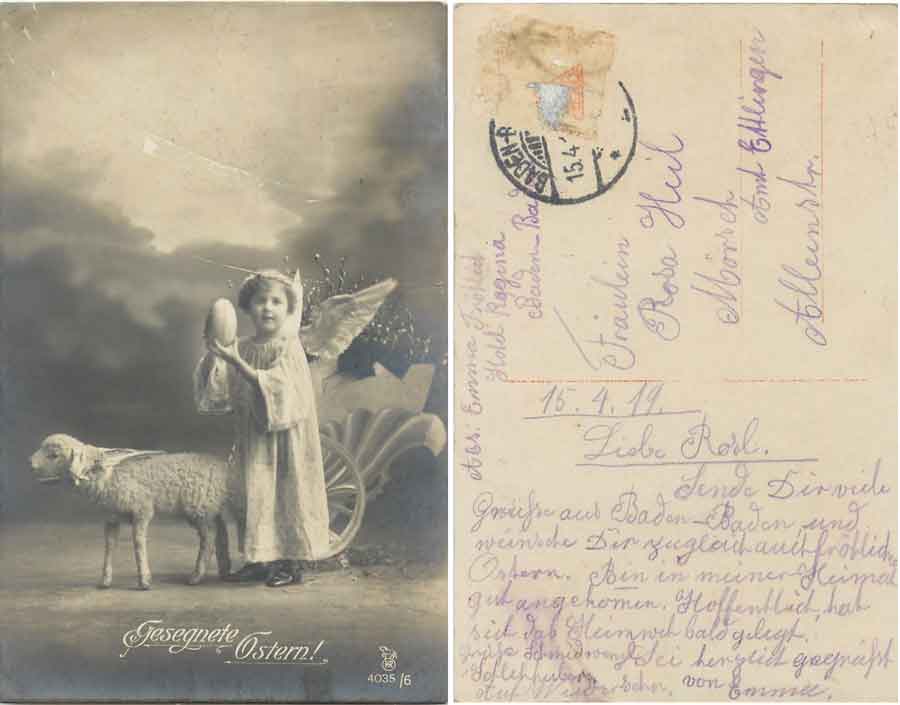 Gesegnete
Ostern!
4035/6
BADEN-B
15.4.
Fräulein
Rosa Heil
Mörsch
Amt Ettlingen
Abs: Emma Fröhlich
Hotel Regina
Baden-Bad
15.4.19.
Liebe Rosl.
Sende Dir viele
Grüße aus Baden-Baden und
wünsche Dir zugleich auch fröhliche
Ostern. Bin in meiner Heimat
gut angekomen. Hoffentlich hat
sich das Heimweh bald gelegt.
Sei herzlich gegrüßt
Auf Wiedersehn. von Emma.